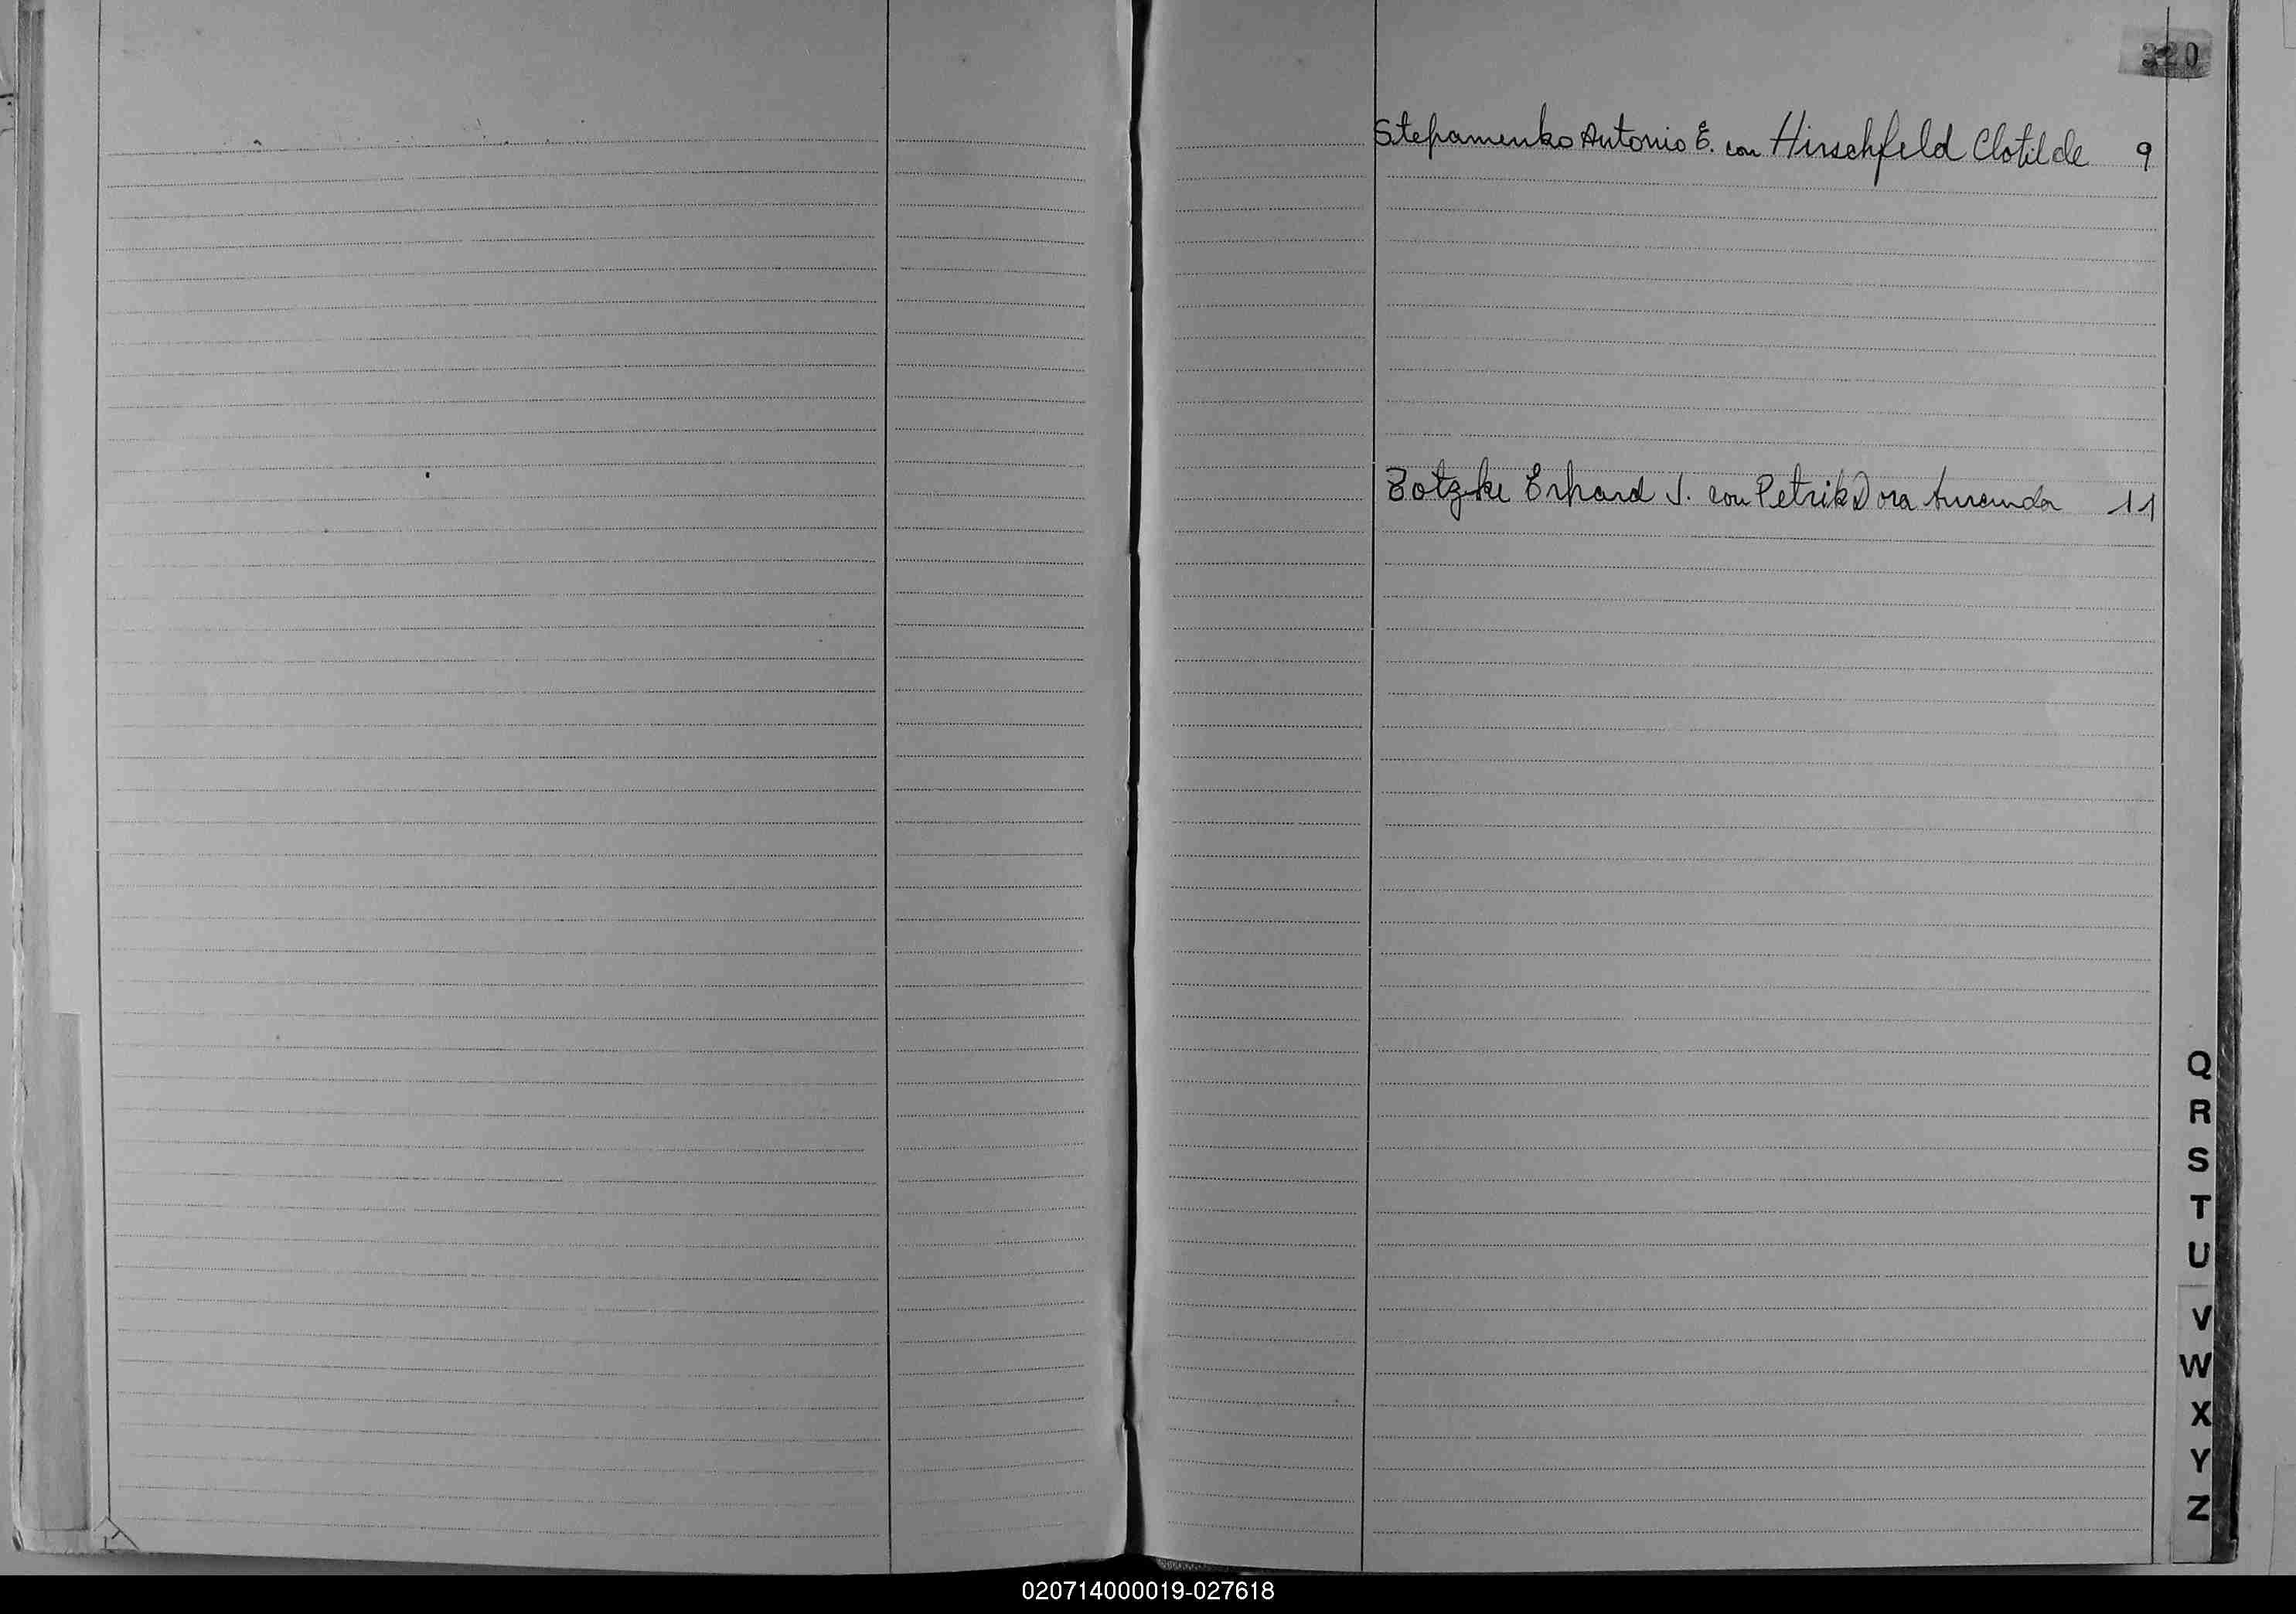 320
Stepamenko Antonio E. con Hirschfeld Clotilde 9
Zotzke Erhard J. con Petrik Dora Amanda 11
Q
R
S
T
U
V
W
X
Y
Z
020714000019-027618